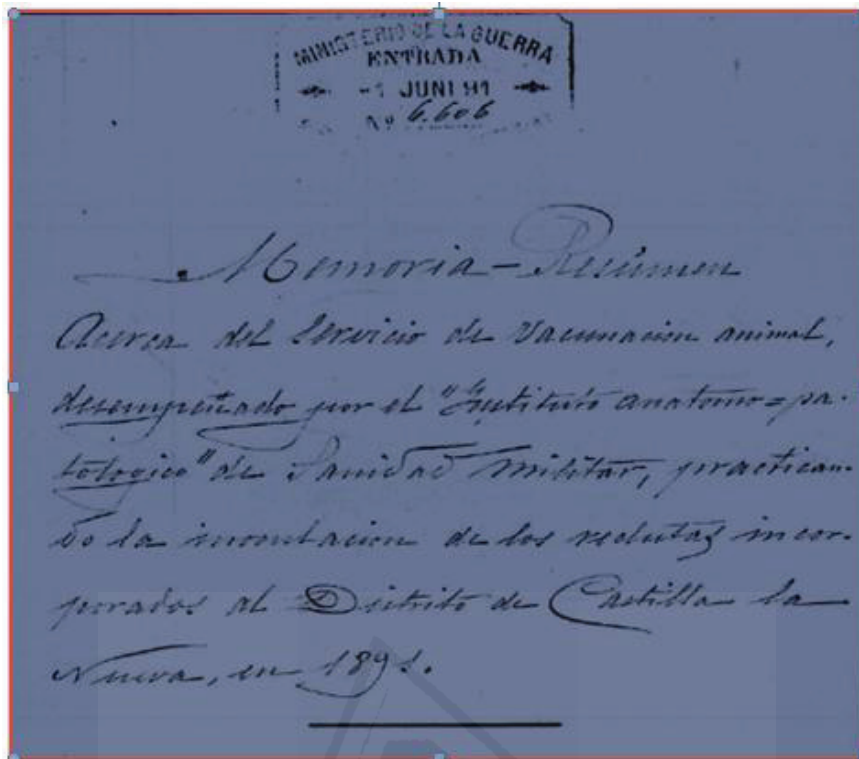 MINISTERIO DE LA GUERRA
ENTRADA
-1 JUNI 91
Nº 6.606
Memoria-Resúmen
Acerca del Servicio de Vacunacion animal,
desempeñado por el "Instituto anatomo=pa-
tologico" de Sanidad Militar, practican-
do la inoculacion de los reclutas incor-
porados al Distrito de Castilla la
Nueva, en 1891.